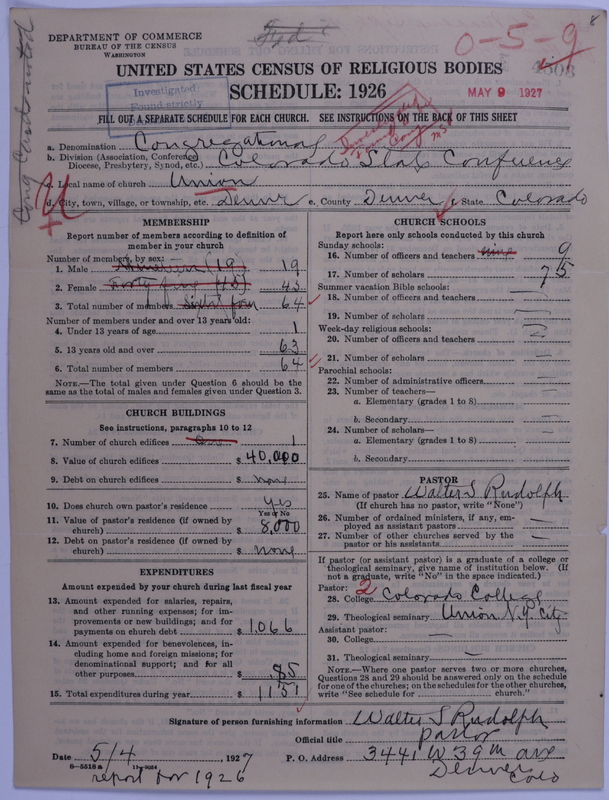 8
DEPARTMENT OF COMMERCE
BUREAU OF THE CENSUS
WASHINGTON
0-5-9
UNITED STATES CENSUS OF RELIGIOUS BODIES
SCHEDULE: 1926
MAY 9 1927
Investigated:
Found strictly
FILL OUT A SEPARATE SCHEDULE FOR EACH CHURCH. SEE INSTRUCTIONS ON THE BACK OF THIS SHEET
a. Denomination Congregational
b. Division (Association, Conference, Diocese, Presbytery, Synod, etc.) Colorado State Conference
c. Local name of church Union
d. City, town, village, or township, etc. Denver e. County Denver f. State Colorado
U
MEMBERSHIP
Report number of members according to definition of
member in your church
Number of members, by sex:
1. Male Nineteen (19) 19
2. Female Forty five (45) 45
3. Total number of members Sixty four 64
Number of members under and over 13 years old:
4. Under 13 years of age 1
5. 13 years old and over 63
6. Total number of members 64
NOTE.—The total given under Question 6 should be the
same as the total of males and females given under Question 3.
CHURCH BUILDINGS
See instructions, paragraphs 10 to 12
7. Number of church edifices One 1
8. Value of church edifices $ 40,000
9. Debt on church edifices $ none
10. Does church own pastor's residence yes
Yes or No
11. Value of pastor's residence (if owned by
church) $ 8,000
12. Debt on pastor's residence (if owned by
church) $ none
EXPENDITURES
Amount expended by your church during last fiscal year
13. Amount expended for salaries, repairs,
and other running expenses; for im-
provements or new building; and for
payments on church debt $ 1066
14. Amount expended for benevolences, in-
cluding home and foreign missions; for
denominational support; and for all
other purposes $ 85
15. Total expenditures during year $ 1151
CHURCH SCHOOLS
Report here only schools conducted by this church
Sunday schools:
16. Number of officers and teachers nine 9
17. Number of scholars 75
Summer vacation Bible schools:
18. Number of officers and teachers —
19. Number of scholars —
Week-day religious schools:
20. Number of officers and teachers
21. Number of scholars —
Parochial schools:
22. Number of administrative officers —
23. Number of teachers—
a. Elementary (grades 1 to 8) —
b. Secondary —
24. Number of scholars—
a. Elementary (grades 1 to 8) —
b. Secondary —
PASTOR
25. Name of pastor Walter S Rudolph
(If church has no pastor, write "None")
26. Number of ordained ministers, if any, em-
ployed as assistant pastors —
27. Number of other churches served by the
pastor or his assistants —
If pastor (or assistant pastor) is a graduate of a college or
theological seminary, give name of institution below. (If
not a graduate, write "No" in the space indicated.)
Pastor: 2
28. College Colorado College
29. Theological seminary Union N.Y. City
Assistant pastor:
30. College —
31. Theological seminary —
NOTE.—Where one pastor serves two or more churches,
Questions 28 and 29 should be answered only on the schedule
for one of the churches; on the schedules for the other churches,
write "See schedule for church."
Signature of person furnishing information Walter S Rudolph
Official title pastor
Date 5/4, 1927 P. O. Address 3441 W 39th ave
Denver
Colo
8-5518a
report for 1926